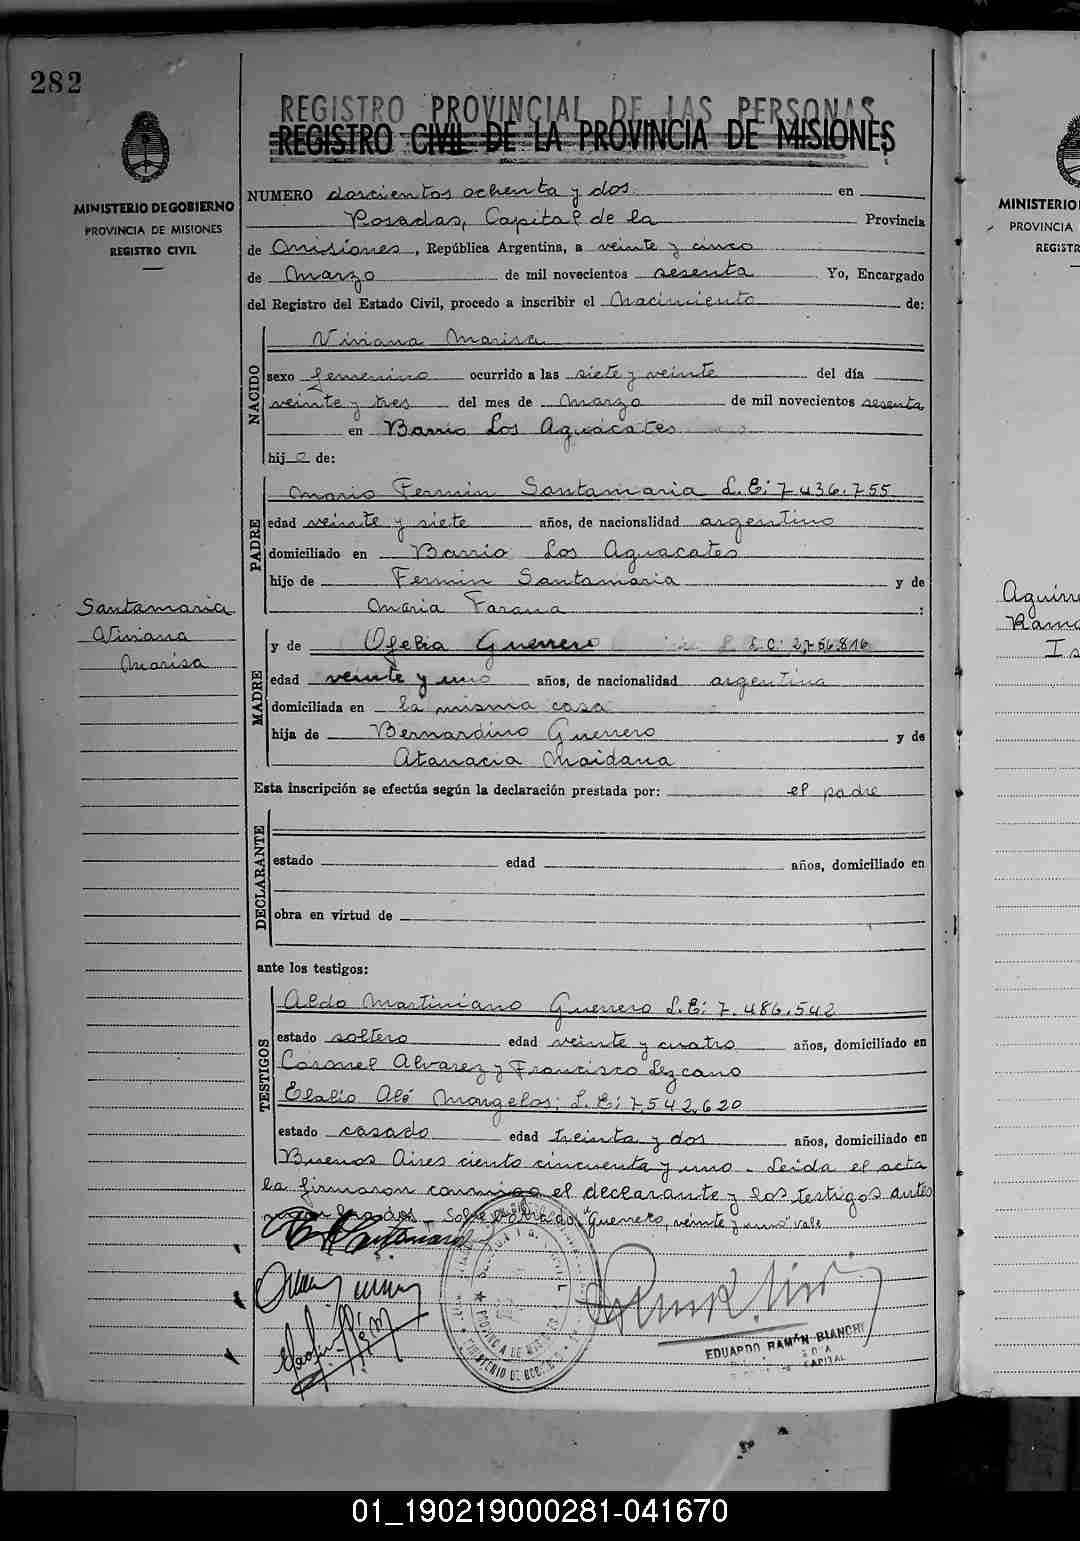 282
MINISTERIO DE GOBIERNO
PROVINCIA DE MISIONES
REGISTRO CIVIL
REGISTRO PROVINCIAL DE LAS PERSONAS
REGISTRO CIVIL DE LA PROVINCIA DE MISIONES
NUMERO doscientos ochenta y dos en
Posadas, Capital de la Provincia
de Misiones, República Argentina, a veinte y cinco
de Marzo de mil novecientos sesenta Yo, Encargado
del Registro del Estado Civil, procedo a inscribir el Nacimiento de:
NACIDO
Viviana Marisa
sexo femenino ocurrido a las siete y veinte del día
veinte y tres del mes de Marzo de mil novecientos sesenta
en Barrio Los Aguacates
hija de:
PADRE
Mario Fermin Santamaria L.E: 7.436.755
edad veinte y siete años, de nacionalidad argentino
domiciliado en Barrio Los Aguacates
hijo de Fermin Santamaria y de
Maria Farana :
Santamaria
Viviana
Marisa
MADRE
y de Ofelia Guerrero L.C: 2.756.816
edad veinte y uno años, de nacionalidad argentina
domiciliada en la misma casa
hija de Bernardino Guerrero y de
Atanacia Maidana
Esta inscripción se efectúa según la declaración prestada por: el padre
DECLARANTE
estado edad años, domiciliado en
obra en virtud de
ante los testigos:
TESTIGOS
Aldo Martiniano Guerrero L.E: 7.486.542
estado soltero edad veinte y cuatro años, domiciliado en
Coronel Alvarez y Francisco Lezcano
Eladio Alé Mongelos; L.E: 7.542.620
estado casado edad treinta y dos años, domiciliado en
Buenos Aires ciento cincuenta y uno. Leida el acta
la firmaron conmigo el declarante y los testigos antes
nombrados. Sobreborrado "Guerrero, veinte y uno" vale
PROVINCIA DE MISIONES
MINISTERIO DE GOBIERNO
EDUARDO RAMÓN BIANCHI
CAPITAL
MINISTERIO
PROVINCIA
REGISTR
Aguirre
Ramo
Is
01_190219000281-041670